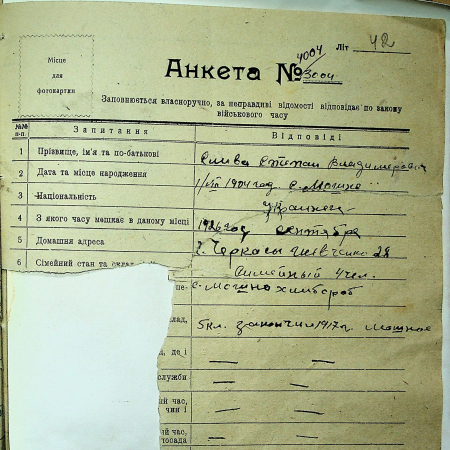 Літ 42
Місце
для
фотокартки
4004
Анкета № 3004
Заповнюється власноручно, за неправдиві відомості відповідає по закону
військового часу
№№ п-п. Запитання Відповіді
1 Прізвище, ім'я та по-батькові Слива Степан Владимирович
2 Дата та місце народження 1/VIII 1904 год. с. Мошно
3 Національність Украинец
4 З якого часу мешкає в даному місці 1926 год сентября
5 Домашня адреса г. Черкасы Шевченко 28
6 Сімейний стан та склад Семейный 4 чел.
с. Мошно хлебороб
клад, 5 кл. закончил 1917 г. Мошное
д, де і — —
служби — —
ий час,
чин і — —
ий час,
посада — —